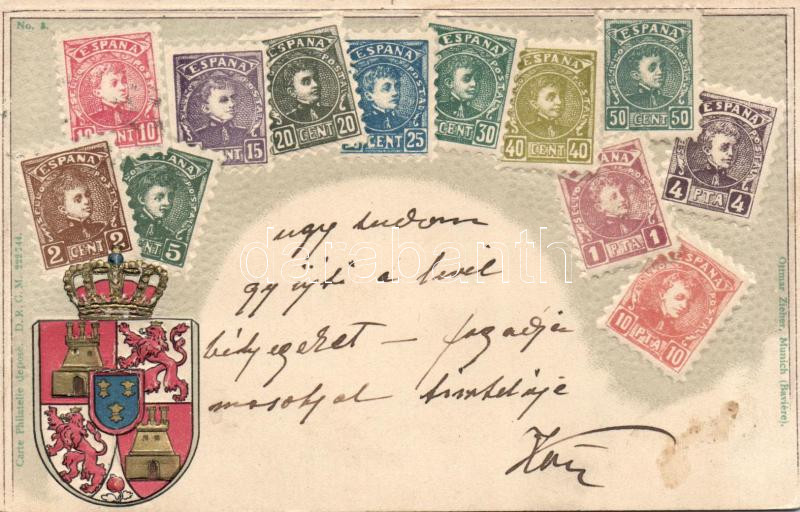 No. 3.
ESPAÑA
10 CENT 10
ESPAÑA
POSTAL
CENT 15
ESPAÑA
POSTAL
20 CENT 20
ESPAÑA
CENT 25
ESPAÑA
POSTAL
CENT 30
ESPAÑA
POSTAL
40 CENT 40
ESPAÑA
50 CENT 50
ESPAÑA
POSTAL
4 PTA 4
ESPAÑA
2 CENT 2
ESPAÑA
CENT 5
ESPAÑA
1 PTA 1
ESPAÑA
POSTAL
10 PTA 10
ugy tudom
gyűjti a levél
bélyegeket – fogadja
tiszteletje
darabanth
Carte Philatelie déposé. D. R. G. M. 222744.
Ottmar Zieher, Munich (Bavière).